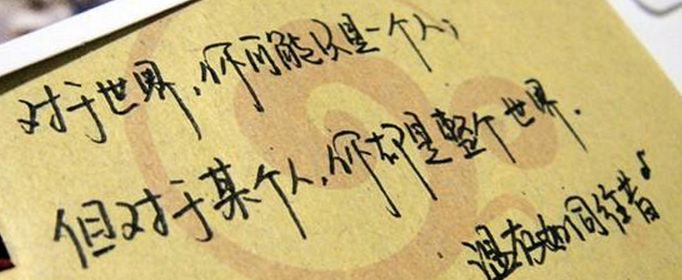 对于世界，你可能只是一个人；
但对于某个人，你却是整个世界．
温存如同往昔♪